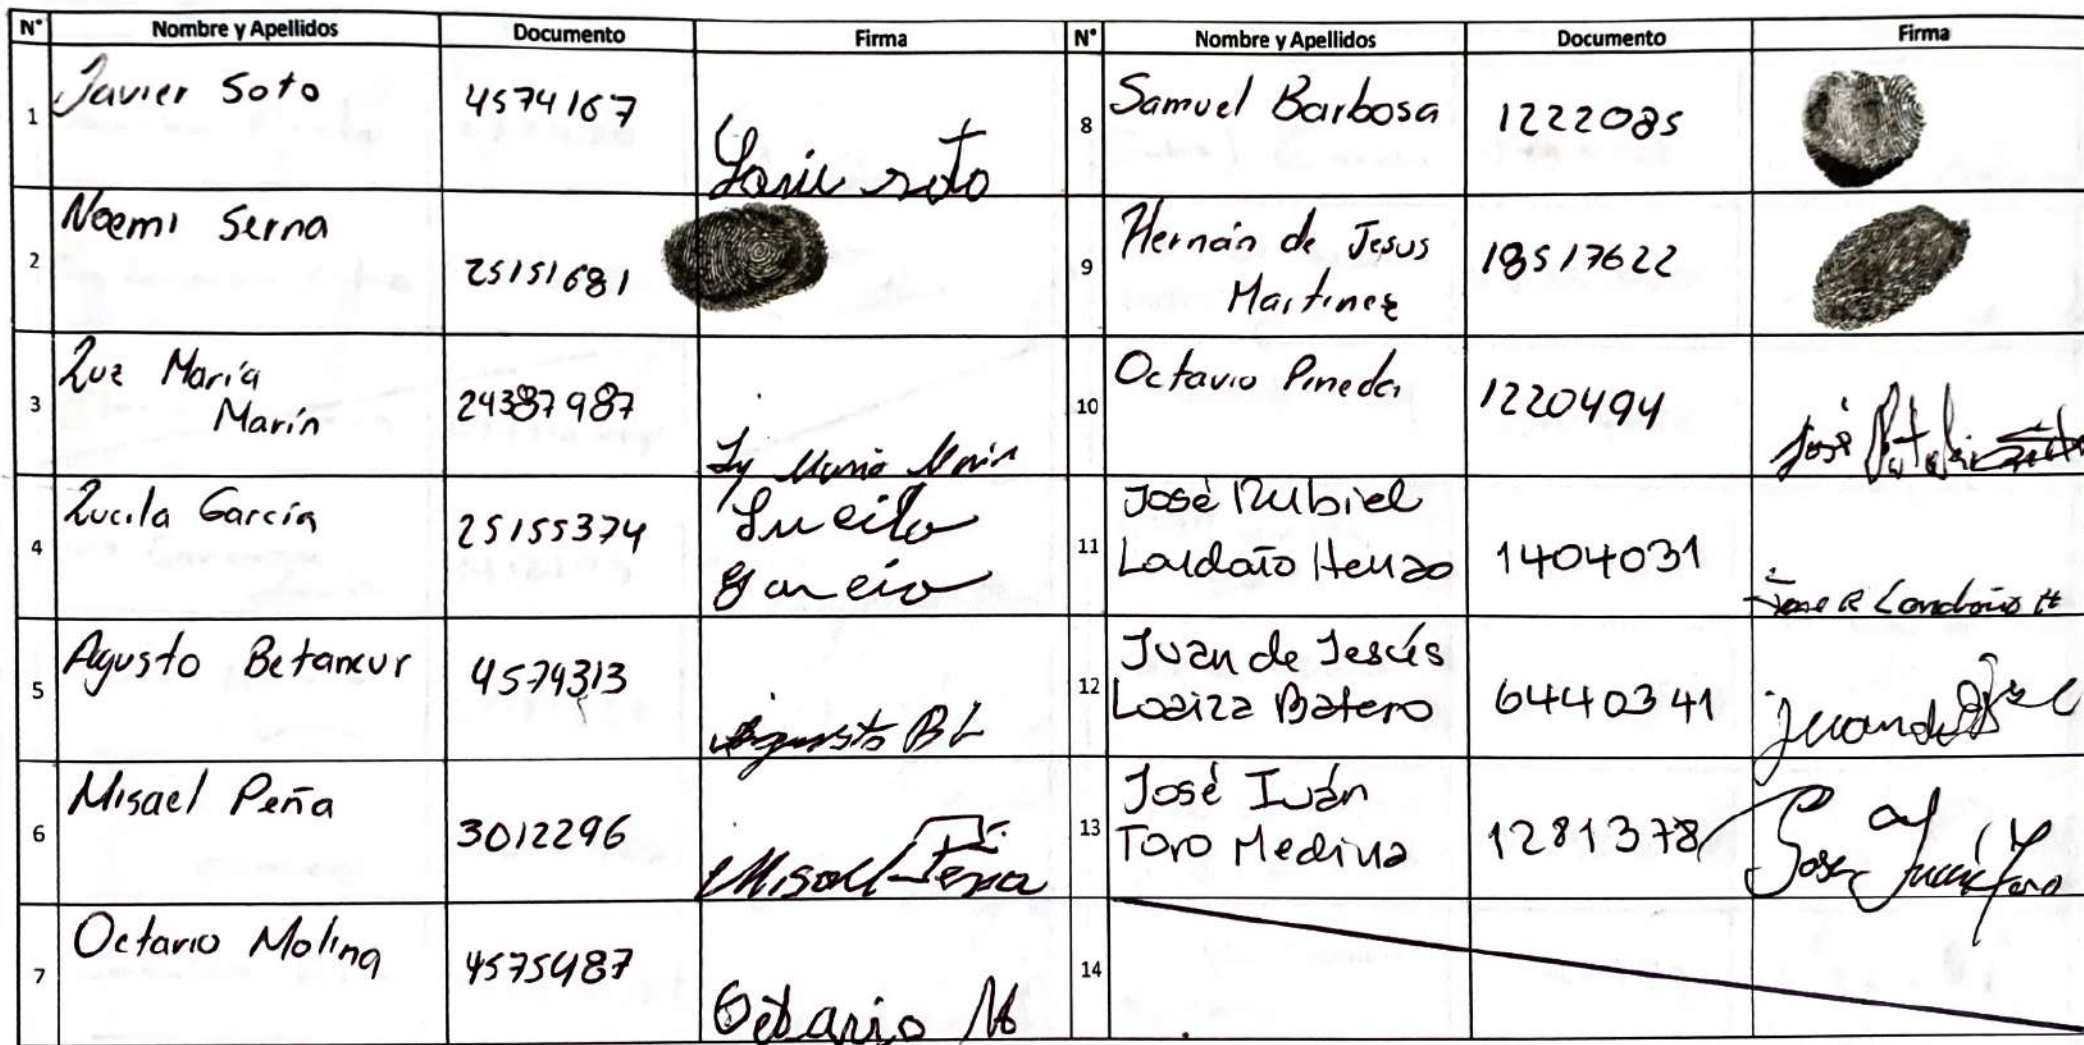 N° Nombre y Apellidos Documento Firma N° Nombre y Apellidos Documento Firma
1 Javier Soto 4574167 Javier soto
2 Noemi Serna 25151681
3 Luz María
Marín 24387987 Luz Maria Marin
4 Lucila García 25155374 Lucila
Garcia
5 Agusto Betancur 4574313 Agusto BL
6 Misael Peña 3012296 Misael Pena
7 Octavio Molina 4575487 Octavio M
8 Samuel Barbosa 1222085
9 Hernán de Jesus
Martinez 18517622
10 Octavio Pineda 1220494 José
11 José Rubiel
Londoño Henao 1404031 Jose R Londoño H
12 Juan de Jesús
Loaiza Batero 6440341 Juan de
13 José Iván
Toro Medina 1281378 Jose Toro
14